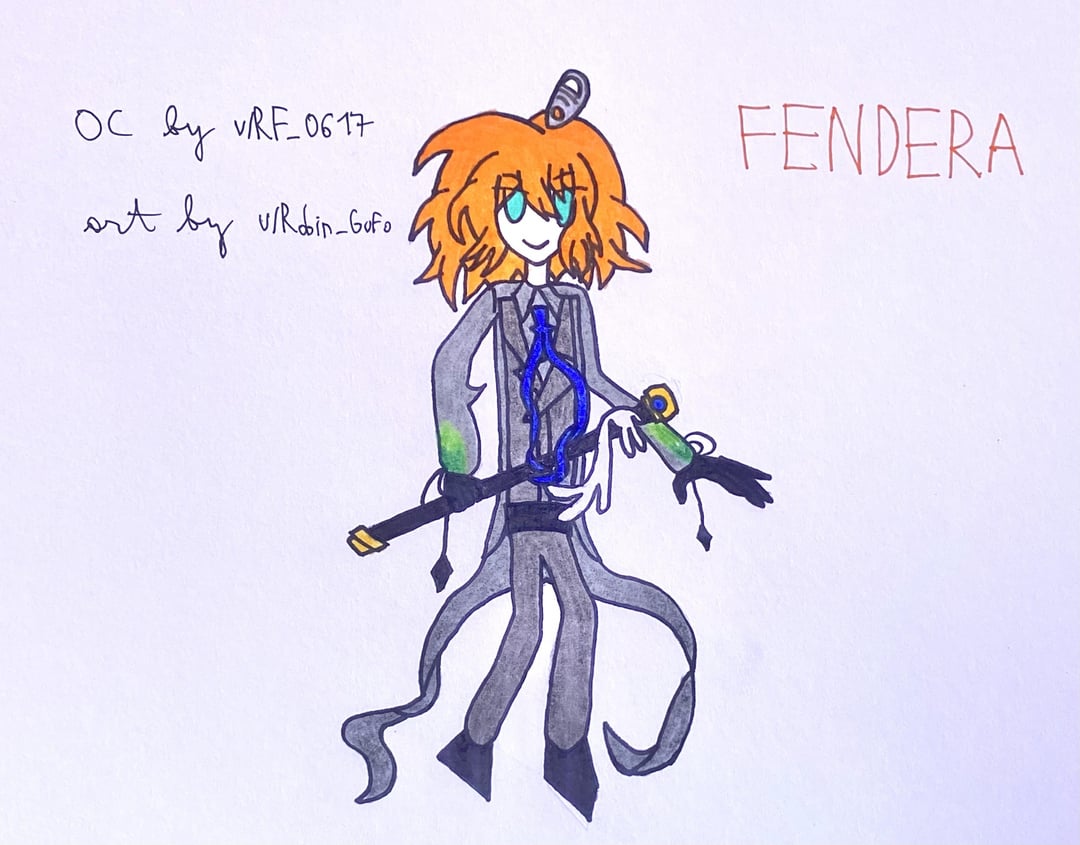 OC by u/RF_0617
art by u/Robin_GoFo
FENDERA